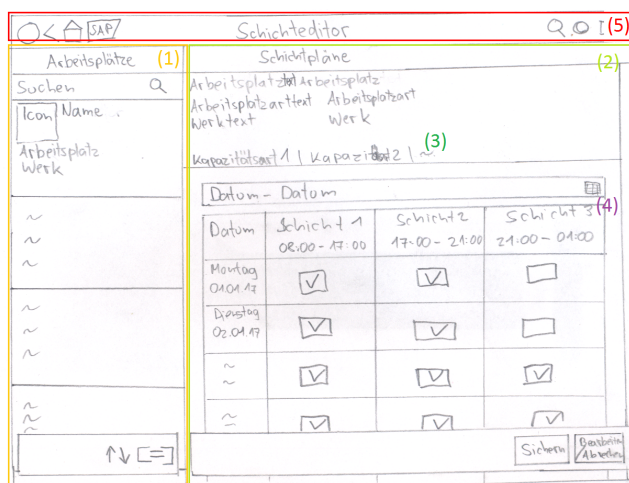 SAP Schichteditor (5)
Arbeitsplätze (1)
Suchen
Icon Name
Arbeitsplatz
Werk
~
~
~
~
~
~
~
~
~
↑↓ [=]
Schichtpläne (2)
Arbeitsplatztxt Arbeitsplatz
Arbeitsplatzarttext Arbeitsplatzart
Werktext Werk
(3)
Kapazitätsart 1 | Kapazität 2 | ~
Datum - Datum
(4)
Datum Schicht 1 Schicht 2 Schicht 3
08:00 - 17:00 17:00 - 21:00 21:00 - 01:00
Montag
01.01.17
Dienstag
02.01.17
~
~
~
~
Sichern Bearbeiten
Abbrechen